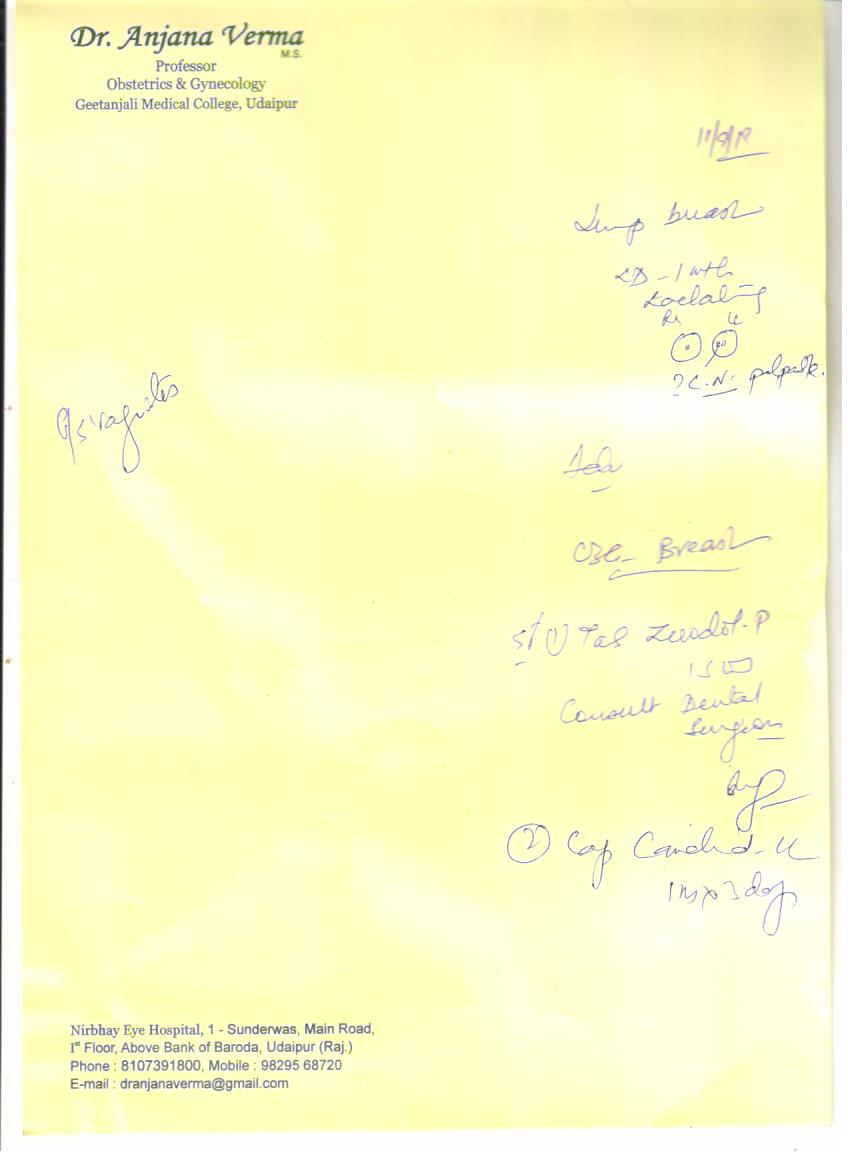 Dr. Anjana Verma
M.S.
Professor
Obstetrics & Gynecology
Geetanjali Medical College, Udaipur
Lump breast
LD - 1 mth
Lactating
Rt Lt
? C.N. palpable.
P/S Vaginitis
Adv
Breast
(1) Tab Zerodol-P
Consult Dental
Surgeon
(2) Cap Candid-V
1 HS x 3 day
Nirbhay Eye Hospital, 1 - Sunderwas, Main Road,
Ist Floor, Above Bank of Baroda, Udaipur (Raj.)
Phone : 8107391800, Mobile : 98295 68720
E-mail : dranjanaverma@gmail.com